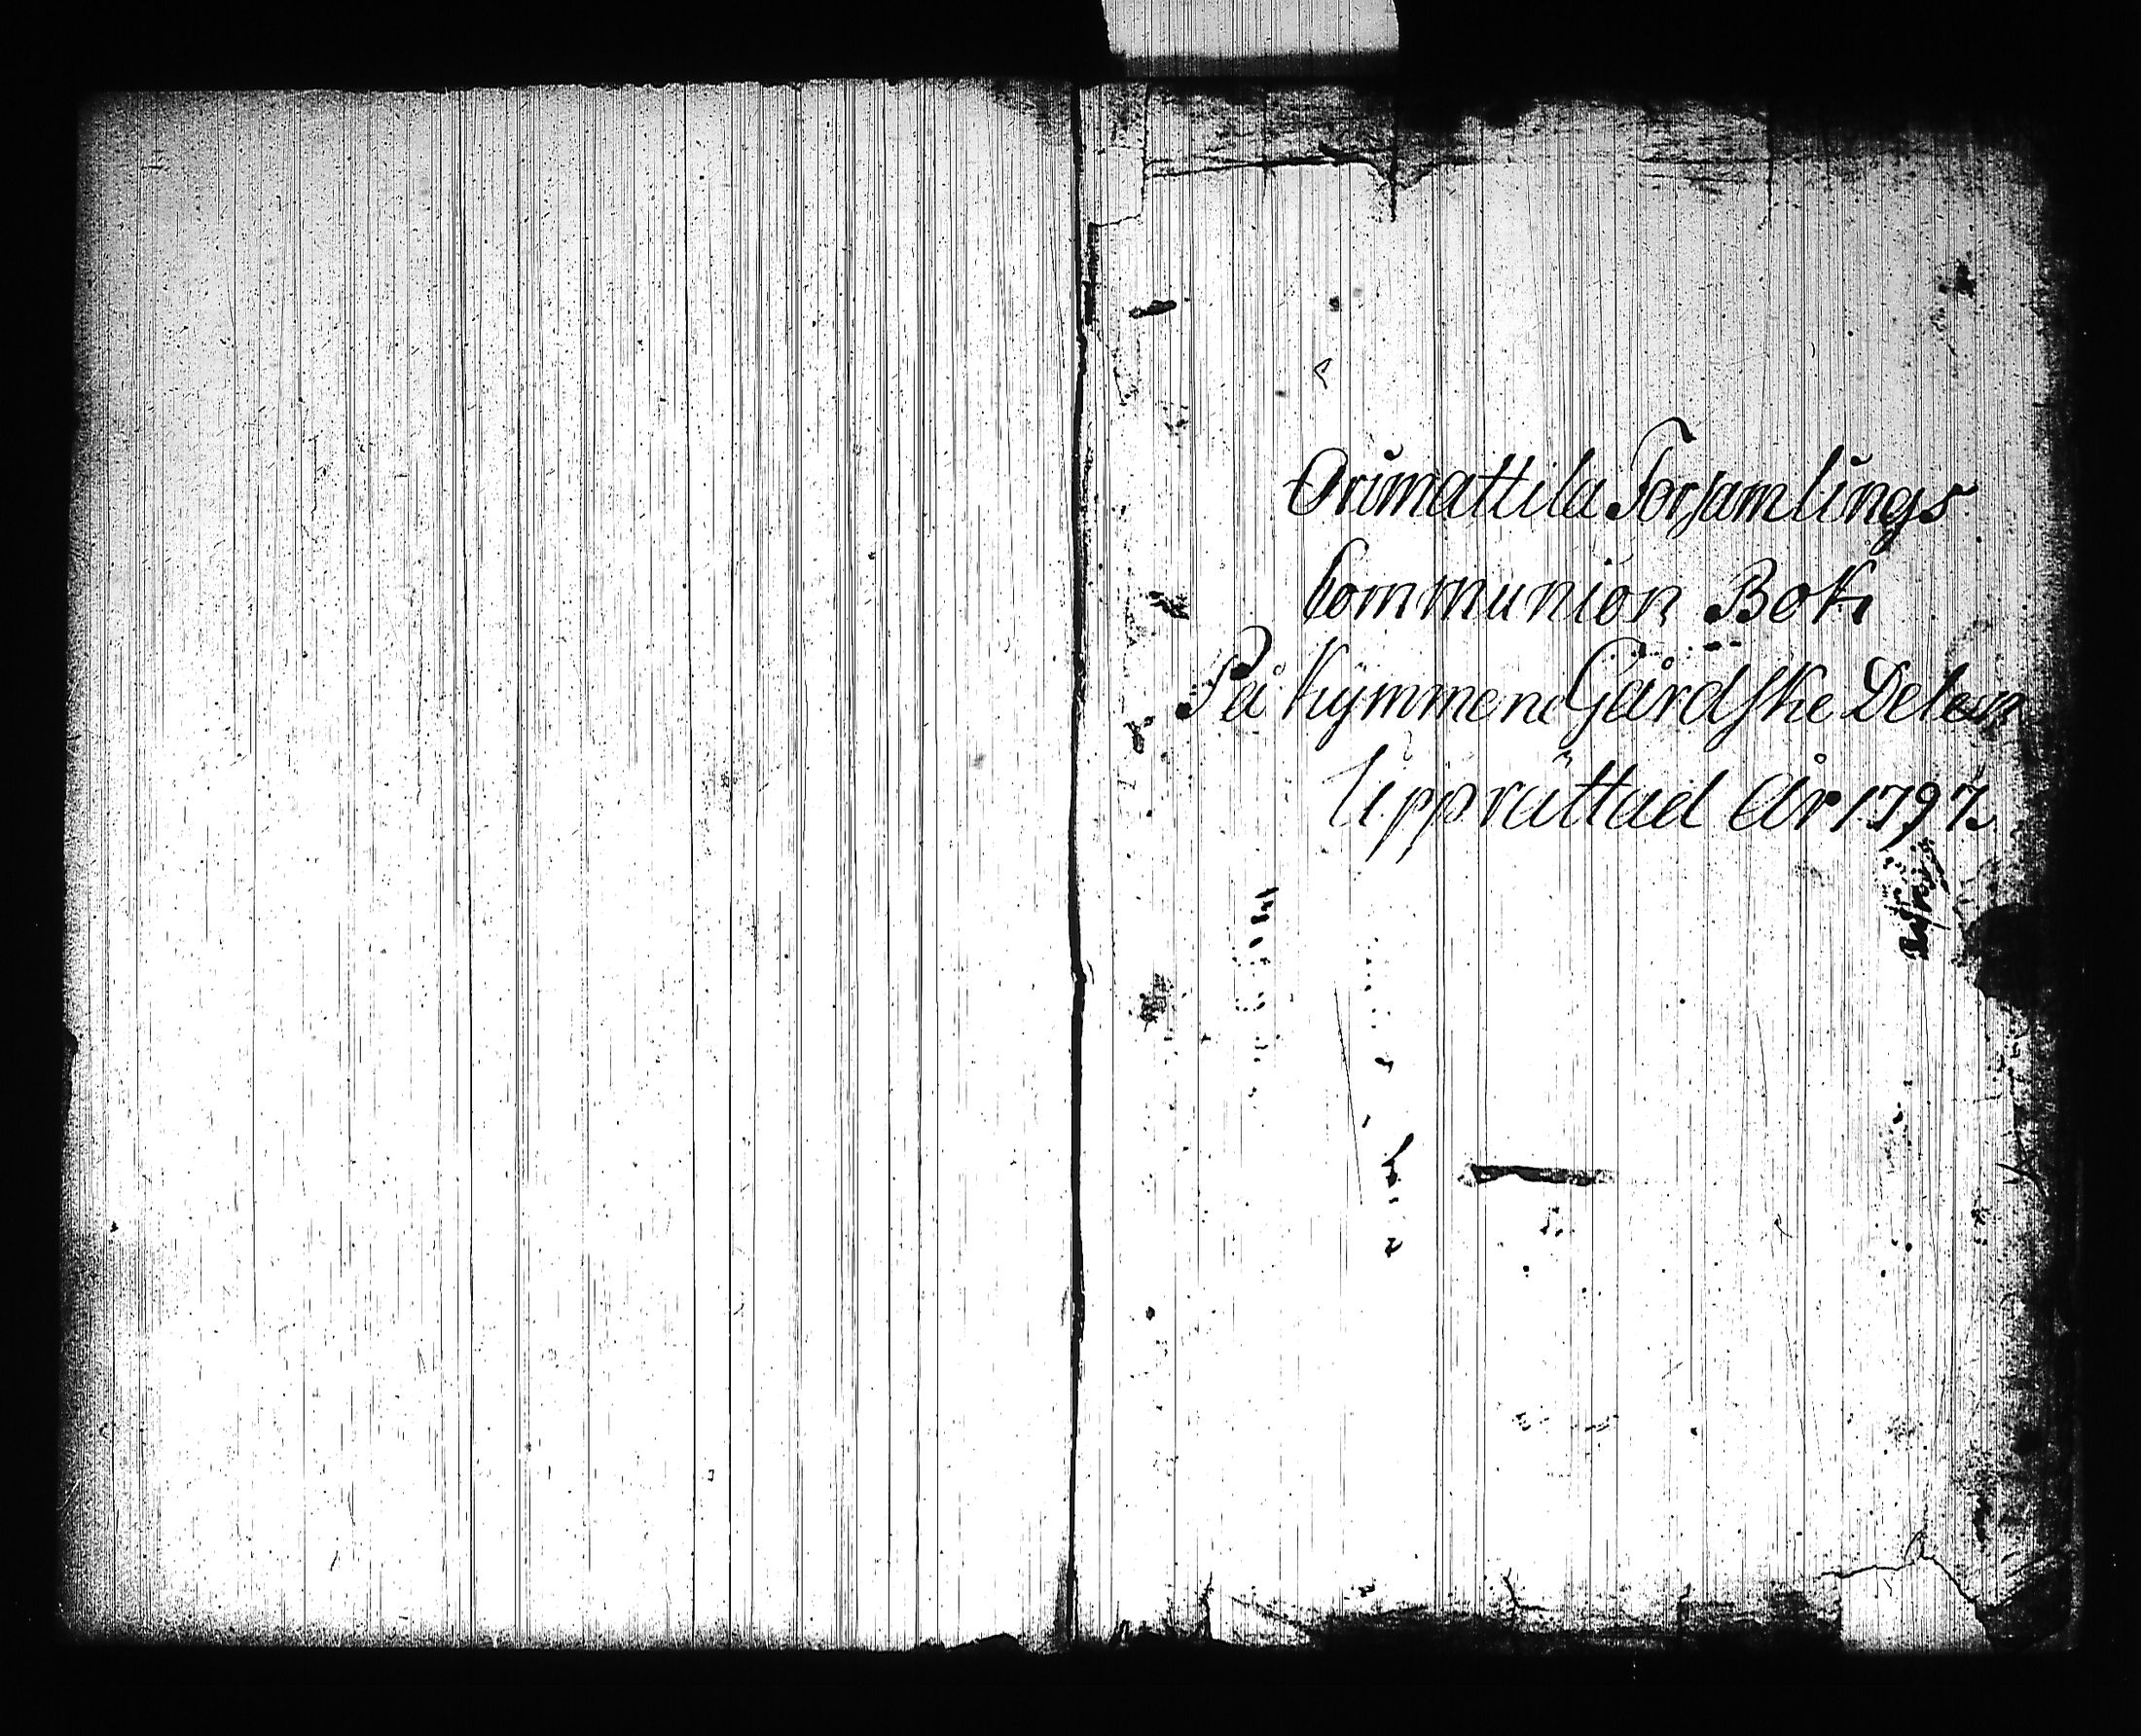 Orimattila Forsamlings
Communion Bok
På Kymmene Gårdske Delern
Upprättad år 1797